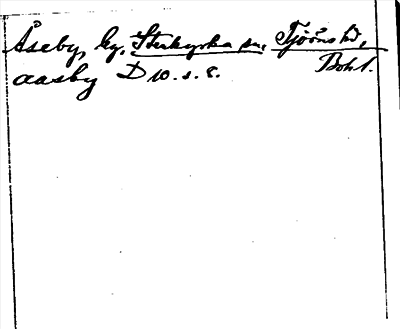 Åseby, by, Stenkyrka sn, Tjörns hd,
Bohl.
aasby D 10. s. 8.